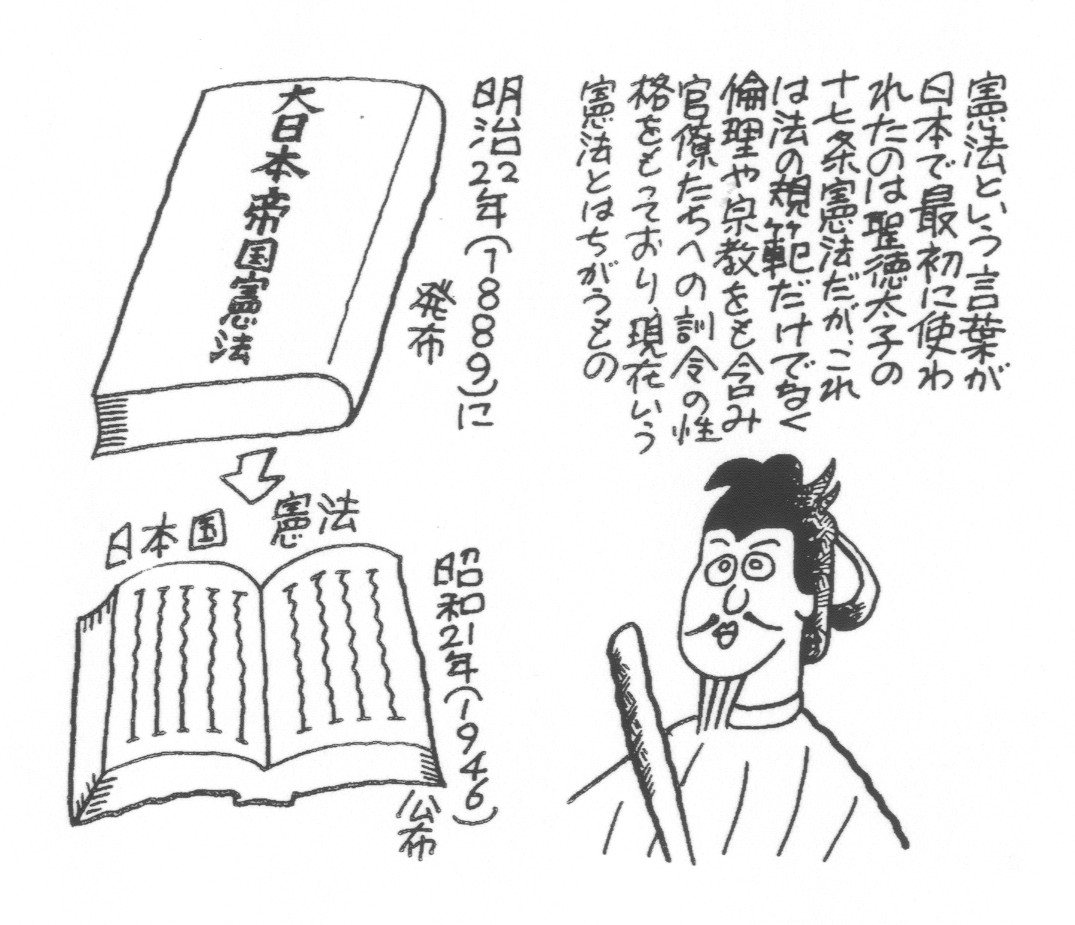 憲法という言葉が
日本で最初に使わ
れたのは聖徳太子の
十七条憲法だが、これ
は法の規範だけでなく
倫理や宗教をも含み
官僚たちへの訓令の性
格をもっており、現在いう
憲法とはちがうもの
明治22年(1889)に
発布
大日本帝国憲法
日本国 憲法
昭和21年(1946)
公布